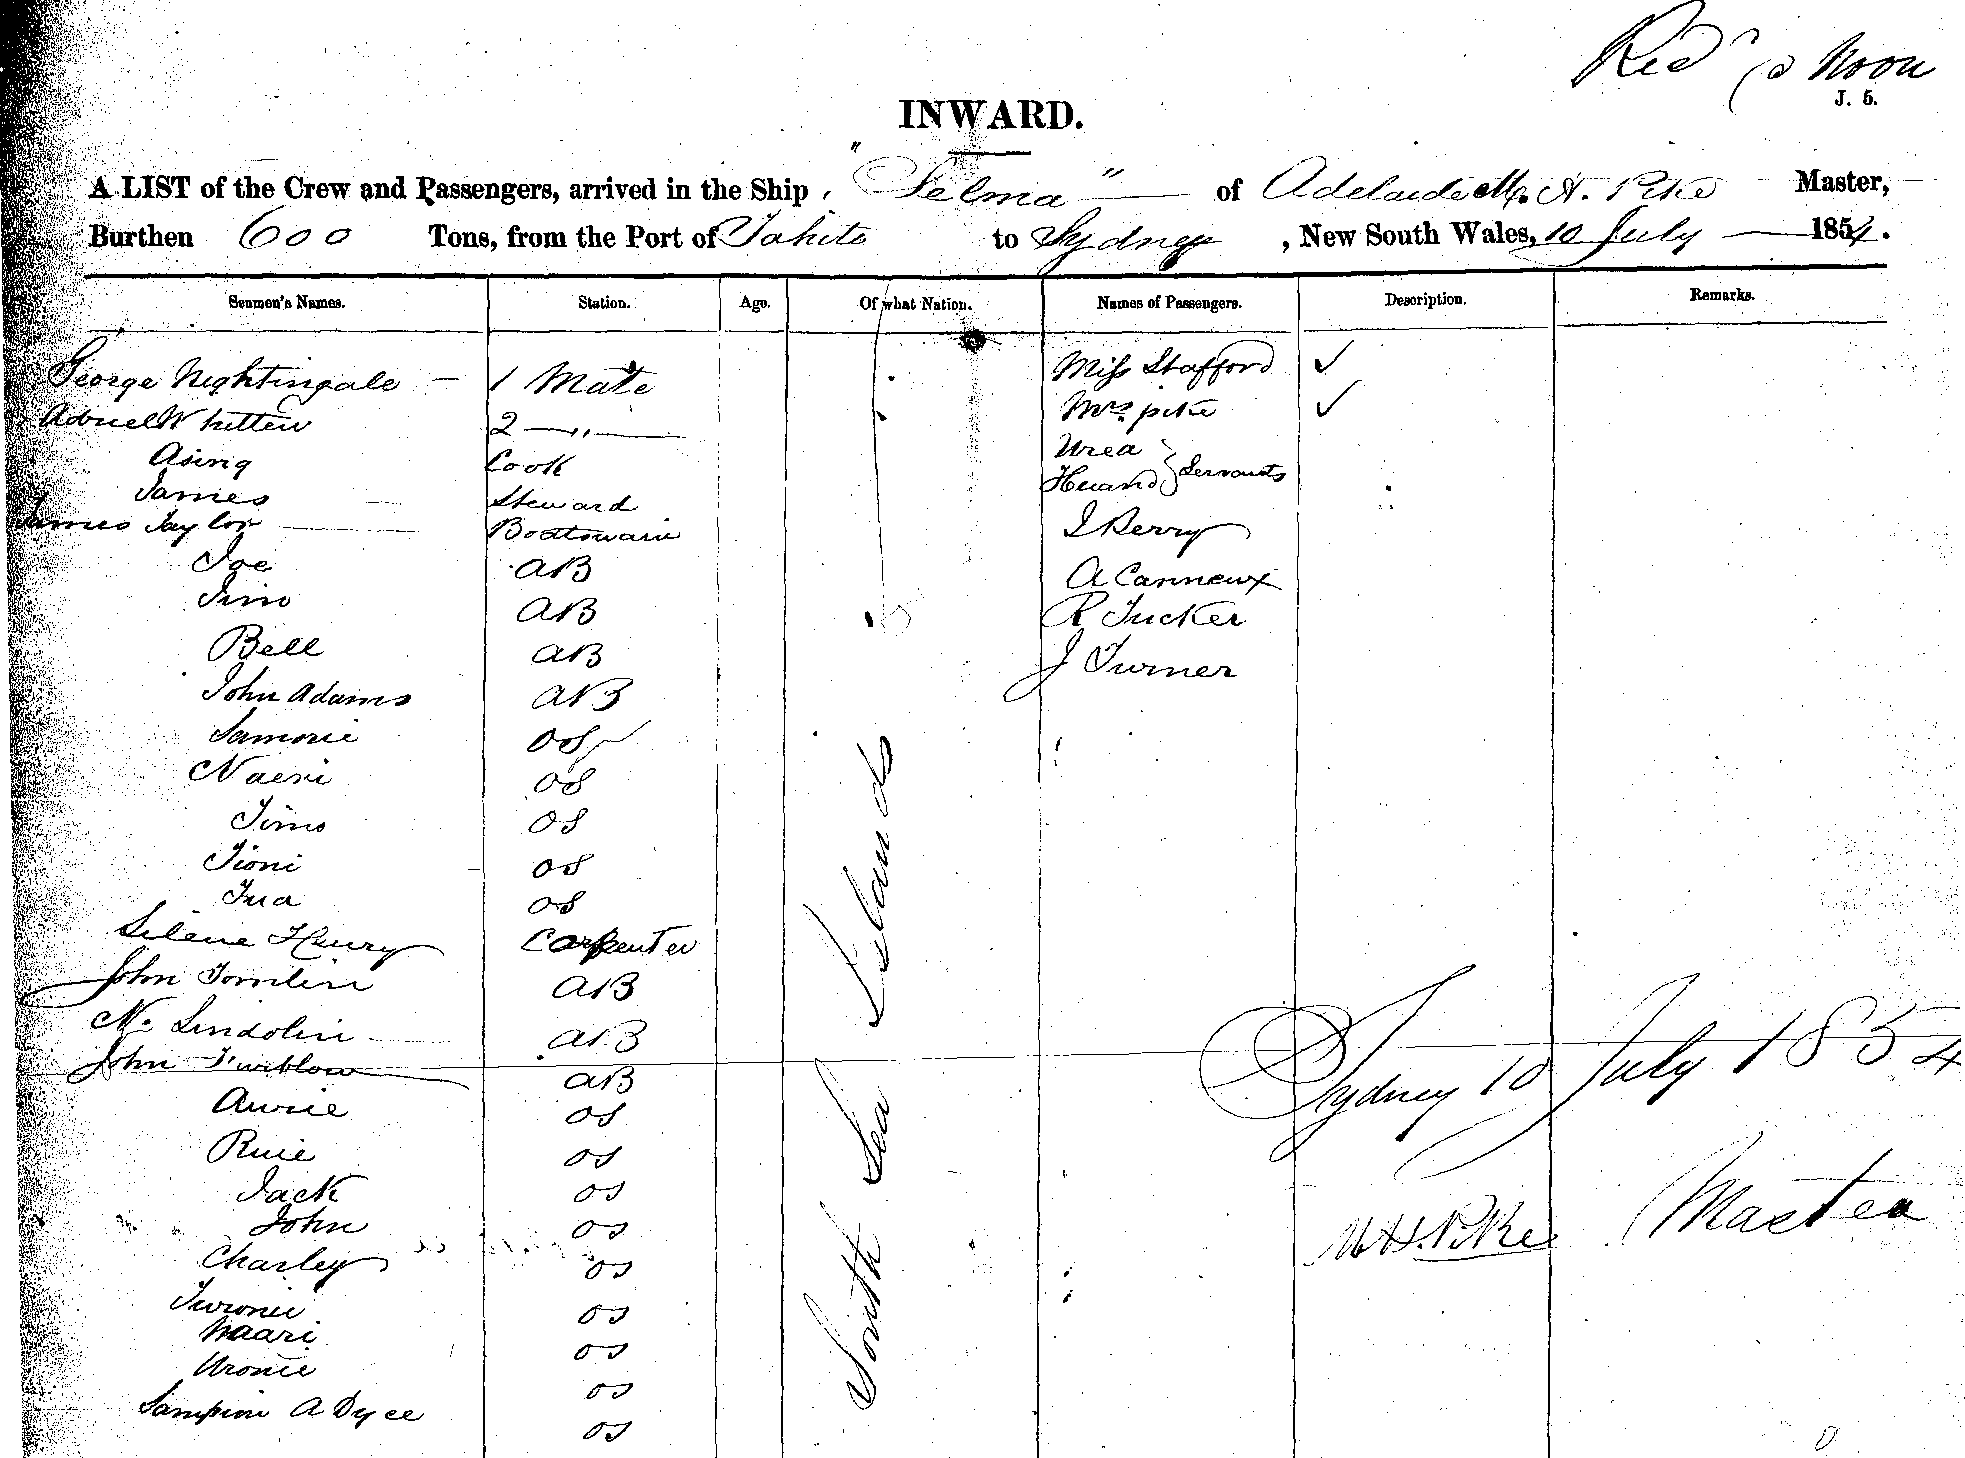 Recd @ Noon
J. 5.
INWARD.
A LIST of the Crew and Passengers, arrived in the Ship "Selma" of Adelaide M. H. Pike Master,
Burthen 600 Tons, from the Port of Tahite to Sydney, New South Wales, 10 July 1854.
Seamen's Names. Station. Age. Of what Nation. Names of Passengers. Description. Remarks.
George Nightingale 1 Mate Miss Stafford ✓
Whitten 2 — " — Mrs pike ✓
Asing Cook Urea
James Steward Huand } Servants
James Taylor Boatswain I Berry
Joe AB
Jim AB A Canneux
Bell AB R Tucker
John Adams AB J Turner
Samorie OS
Naeri OS
Jims OS
Tioni OS
Tua OS
Silene Henry Carpenter
John Tomlin AB
N. Lindolin AB
John AB
Aurie OS
Ruie OS
Jack OS
John OS
Charley OS
Turonie OS
Maari OS
Uronie OS
A Dyce OS
South Sea Islands
Sydney 10 July 1854
M H Pike Master